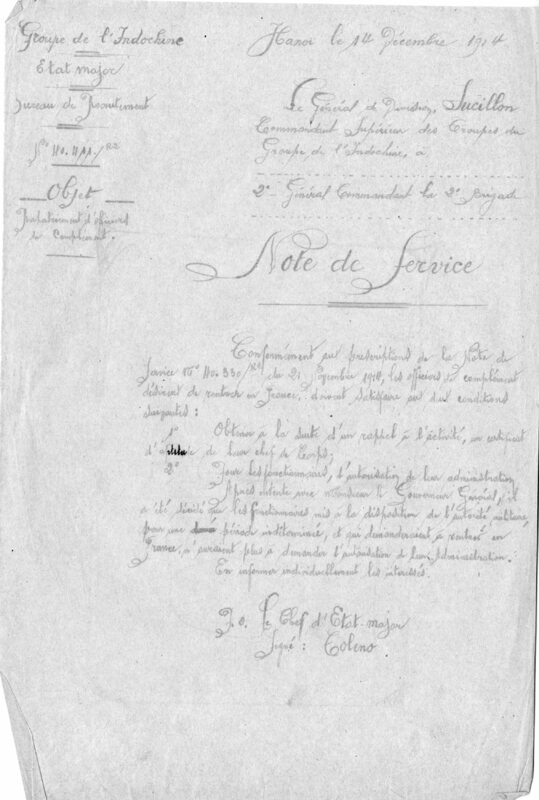 Groupe de l'Indochine
Etat major
Bureau de Recrutement
Objet
Rapatriement d'officiers
de complément.
Hanoi le 14 Décembre 1914
Le Général de Division, Sucillon
Commandant Supérieur des Troupes du
Groupe de l'Indochine, à
2e Général Commandant la 2e Brigade
Note de Service
Conformément aux prescriptions de la Note de
Service No 110.330 du 21 1914, les officiers de complément
désireux de rentrer en France, doivent satisfaire aux deux conditions
suivantes :
1o Obtenir à la suite d'un rappel à l'activité, un certificat
d'aptitude de leur chef de Corps;
2o Pour les fonctionnaires, l'autorisation de leur administration,
Après entente avec Monsieur le Gouverneur Général, il
a été décidé que les fonctionnaires mis à la disposition de l'autorité militaire
pour une période indéterminée, et qui demanderaient à rentrer en
France, n'auraient plus à demander l'autorisation de leur Administration.
En informer individuellement les intéressés.
P.O. le Chef d'Etat-major
Signé : Coleno